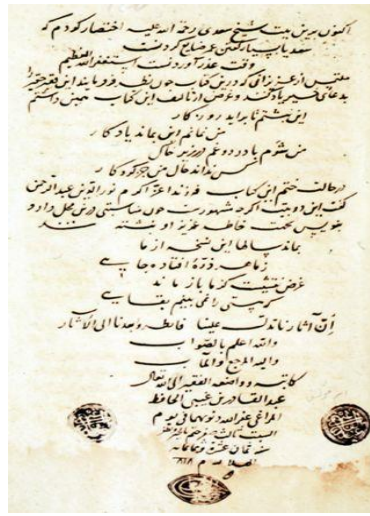 اکنون برین بیت شیخ سعدی رحمة الله علیه اختصار کردم که
سعدیا بسیار گفتن عمر ضایع کردنست
وقت عذر آوردنست استغفرالله العظیم
ملتمس از عزیزانی که درین کتاب چون نظر فرمایند این فقیر حقیر را
بدعای خیر یاد کنند و غرض از تالیف این کتاب همین داشتم
این نبشتم تا براید روزکار
من نمانم این بماند یادکار
من شوم با درد و غم در زیر خاک
کس نداند حال من جز کردکار
در حالت ختم این کتاب فرزند اعز اکرم نورالدین عبدالرحمن
گفت این دو بیت اگرچه شهورست چون مناسبتی درین محل دارد
بنویس تحت خاطر عزیز او نبشته شد
بماند سالها این نسخه از ما
ز ما هر ذره افتاده بجایی
غرض نقشیست کز ما باز ماند
که هستی را نمی بینم بقایی
إن آثارنا تدل علینا فانظروا بعدنا الی الآثار
والله اعلم بالصواب
والیه المرجع والمآب
کاتبه و واضعه الفقیر الی الله تعالی
عبدالقادر بن غیبی الحافظ
المراغی غفر الله ذنوبهما فی یوم
السبت الثالث
سنه ثمان عشره وثمانمائه
الهلالیه ٨١٨